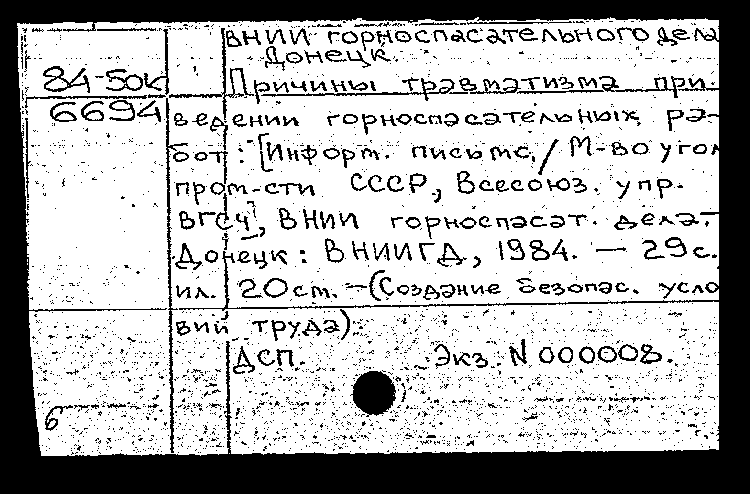 ВНИИ горноспасательного дела
Донецк.
84-50к Причины травматизма при.
6694 ведении горноспасательных ра-
бот: [Информ. письмо / М-во угол
пром-сти СССР, Всесоюз. упр.
ВГСЧ], ВНИИ горноспасат. дела.-
Донецк: ВНИИГД, 1984. — 29с.
ил. 20см. -(Создание безопас. усло
вий труда).
ДСП. Экз. N 000008.
6